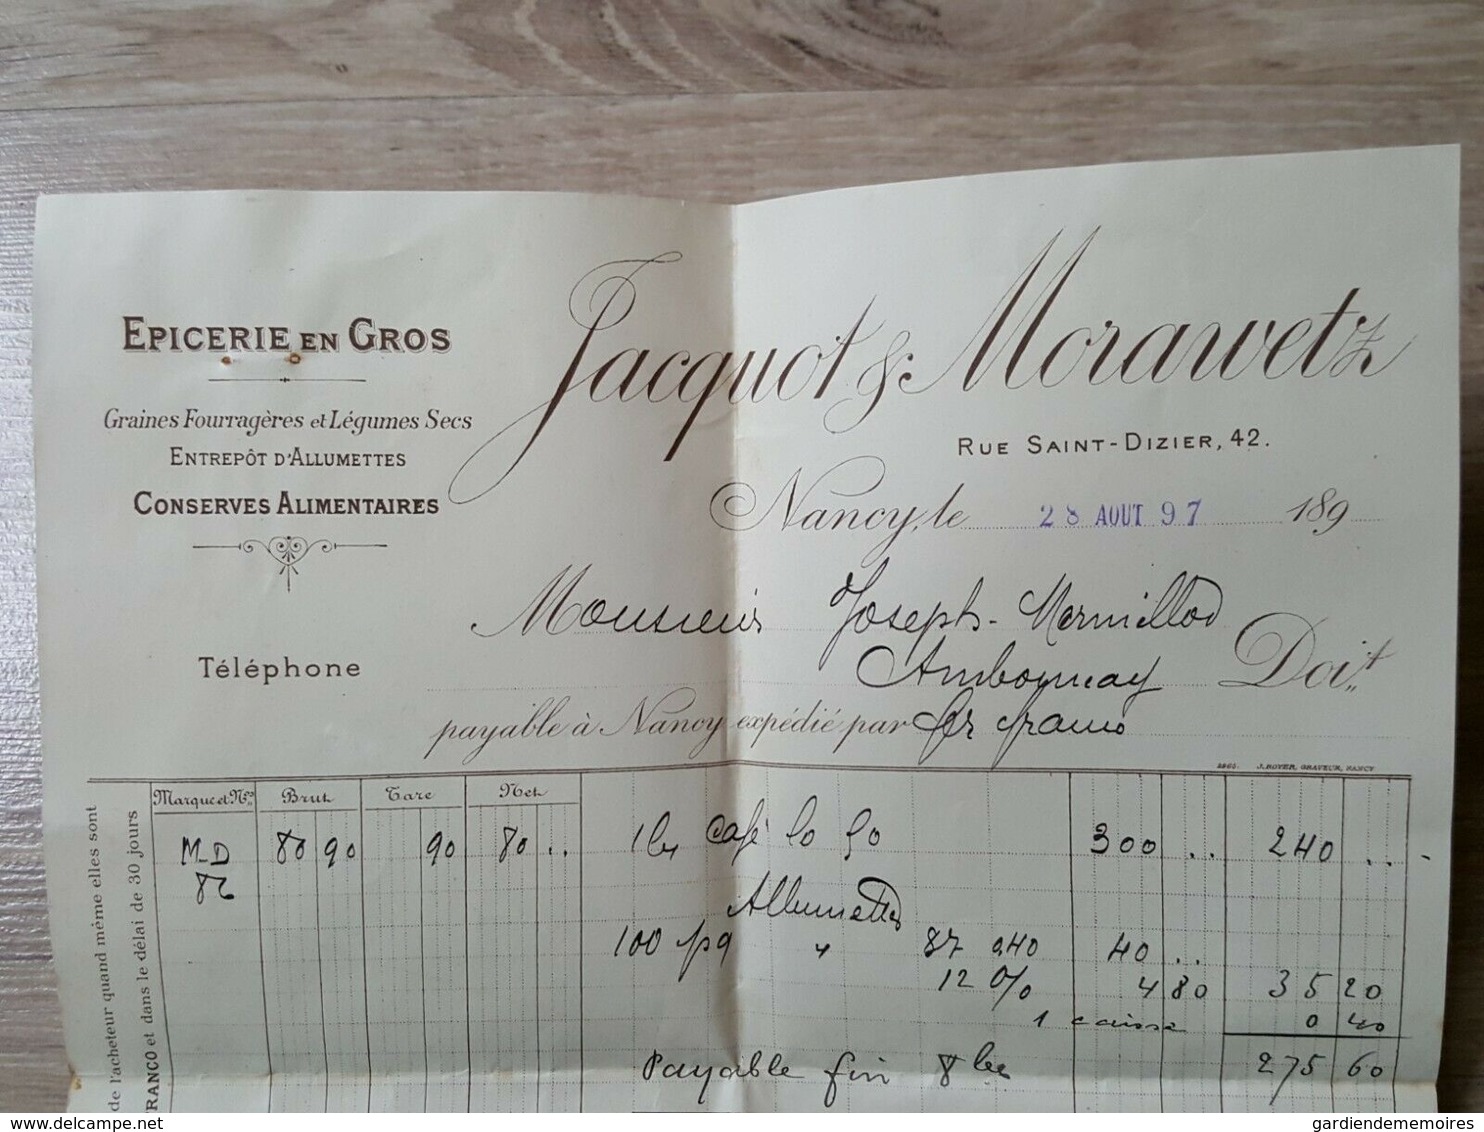 EPICERIE EN GROS
Graines Fourragères et Légumes Secs
ENTREPÔT D'ALLUMETTES
CONSERVES ALIMENTAIRES
Téléphone
Jacquot & Morawetz
RUE SAINT-DIZIER, 42.
Nancy, le 28 AOUT 97 189
Monsieur Joseph Mermillod
Ambronay Doit
payable à Nancy expédié par
1865. J. ROYER, GRAVEUR, NANCY
Marque et Nos Brut Tare Net
M-D 80 90 90 80 .. Café 300 .. 240 ..
Allumettes
100 pq " 87 0,40 40 ..
12 % 4 80 35 20
1 caisse 0 40
Payable fin 8bre 275 60
de l'acheteur quand même elles sont
FRANCO et dans le délai de 30 jours
www.delcampe.net
gardiendememoires